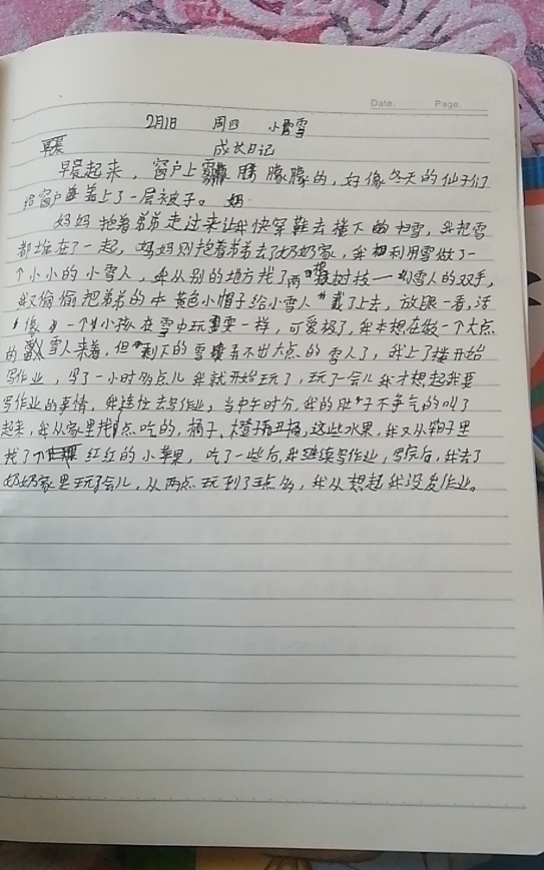 Date. Page.
2月1日 周四 小雪
成长日记
早晨起来，窗户上雾朦朦的，好像冬天的仙子们
给窗户盖上了一层被子。
妈妈抱着弟弟走过来让我快穿鞋去楼下扫雪，我把雪
都堆在了一起，妈妈则抱着弟弟去了奶奶家，我利用雪做了一
个小小的小雪人，我从别的地方找了两根树枝一小雪人的双手，
我又偷偷把弟弟的黄色小帽子给小雪人戴了上去，放眼一看，活
像一个小孩在雪中玩耍一样，可爱极了，我本想在做一个大点
的雪人来着，但剩下的雪弄不出大点的雪人了，我上了楼开始
写作业，写了一小时多点儿我就开始玩了，玩了一会儿我才想起我要
写作业的事情，我连忙去写作业，当中午时分，我的肚子不争气的叫了
起来，我从家里找点吃的，橘子、丑橘，这些水果，我又从箱子里
找了个红红的小苹果，吃了一些后，我继续写作业，写完后，我去了
奶奶家里玩了会儿，从两点玩到了三点多，我从想起我没发作业。